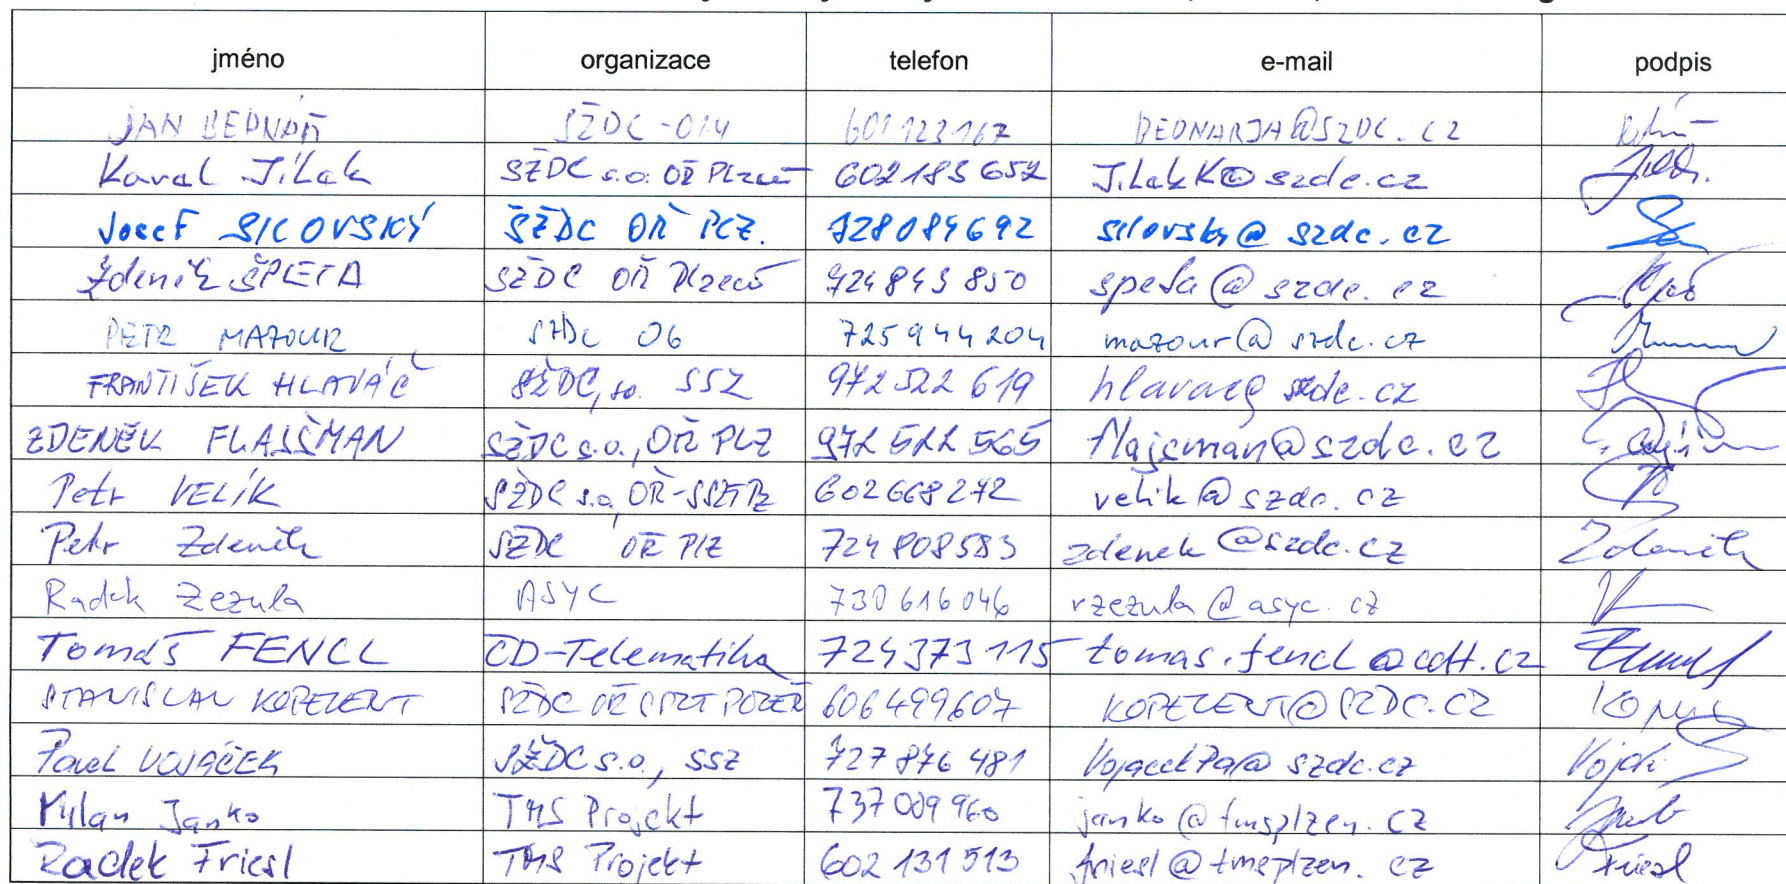 jméno organizace telefon e-mail podpis
JAN BEDNÁŘ SŽDC-O14 601123167 BEDNARJA@SZDC.CZ
Karel Jílek SŽDC s.o. OŘ Plzeň 602183652 JilekK@szdc.cz
Josef SILOVSKÝ SŽDC OŘ PLZ. 728084692 silovsky@szdc.cz
Zdeněk ŠPETA SŽDC OŘ Plzeň 724843850 speta@szdc.cz
PETR MAZOUR SŽDC O6 725944204 mazour@szdc.cz
FRANTIŠEK HLAVÁČ SŽDC, s.o. SSZ 972522619 hlavac@szdc.cz
ZDENĚK FLAJŠMAN SŽDC s.o., OŘ PLZ 972 522 565 flajsman@szdc.cz
Petr VELÍK SŽDC s.o., OŘ-SSZT Plz 602668272 velik@szdc.cz
Petr Zdeněk SŽDC OŘ Plz 724 808583 zdenek@szdc.cz Zdeněk
Radek Zezula ASYC 730616046 rzezula@asyc.cz
Tomáš FENCL ČD-Telematika 724373115 tomas.fencl@cdt.cz
STANISLAV KOPEZENT SŽDC OŘ SSZT PLZEŇ 606499607 KOPEZENT@SZDC.CZ
Pavel VOJÁČEK SŽDC s.o., SSZ 727 876 481 VojacekPa@szdc.cz
Milan Janko TMS Projekt 737 009 960 janko@tmsplzen.cz
Radek Friesl TMS Projekt 602 131 513 friesl@tmsplzen.cz Friesl